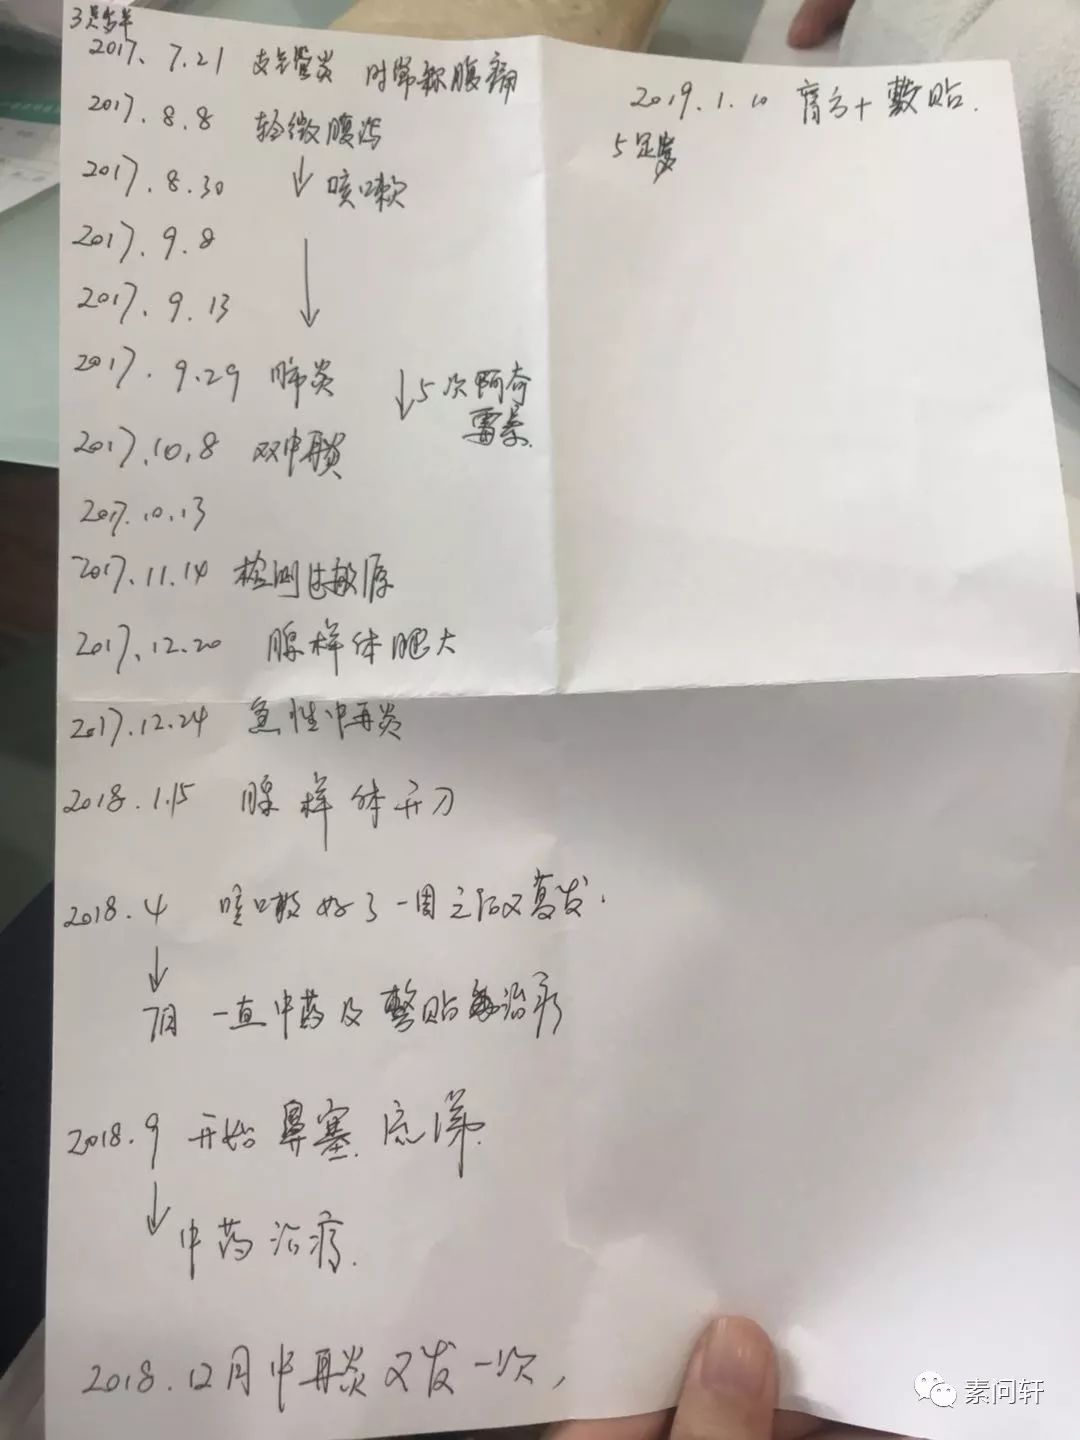 3足岁半
2017.7.21 支气管炎 时常称腹痛
2017.8.8 轻微腹泻
2017.8.30 ↓咳嗽
2017.9.8
2017.9.13
2017.9.29 肺炎 ↓5次阿奇
雾条
2017.10.8 双中再炎
2017.10.13
2017.11.14 检测过敏原
2017.12.20 腺样体肥大
2017.12.24 急性中再炎
2018.1.15 腺样体开刀
2018.4 咳嗽好了一周之后又复发.
↓
7月 一直中药及敷贴治疗
2018.9 开始鼻塞.流涕.
↓中药治疗.
2018.12月中再炎又发一次,
2019.1.10 膏方+敷贴.
5足岁
素问轩